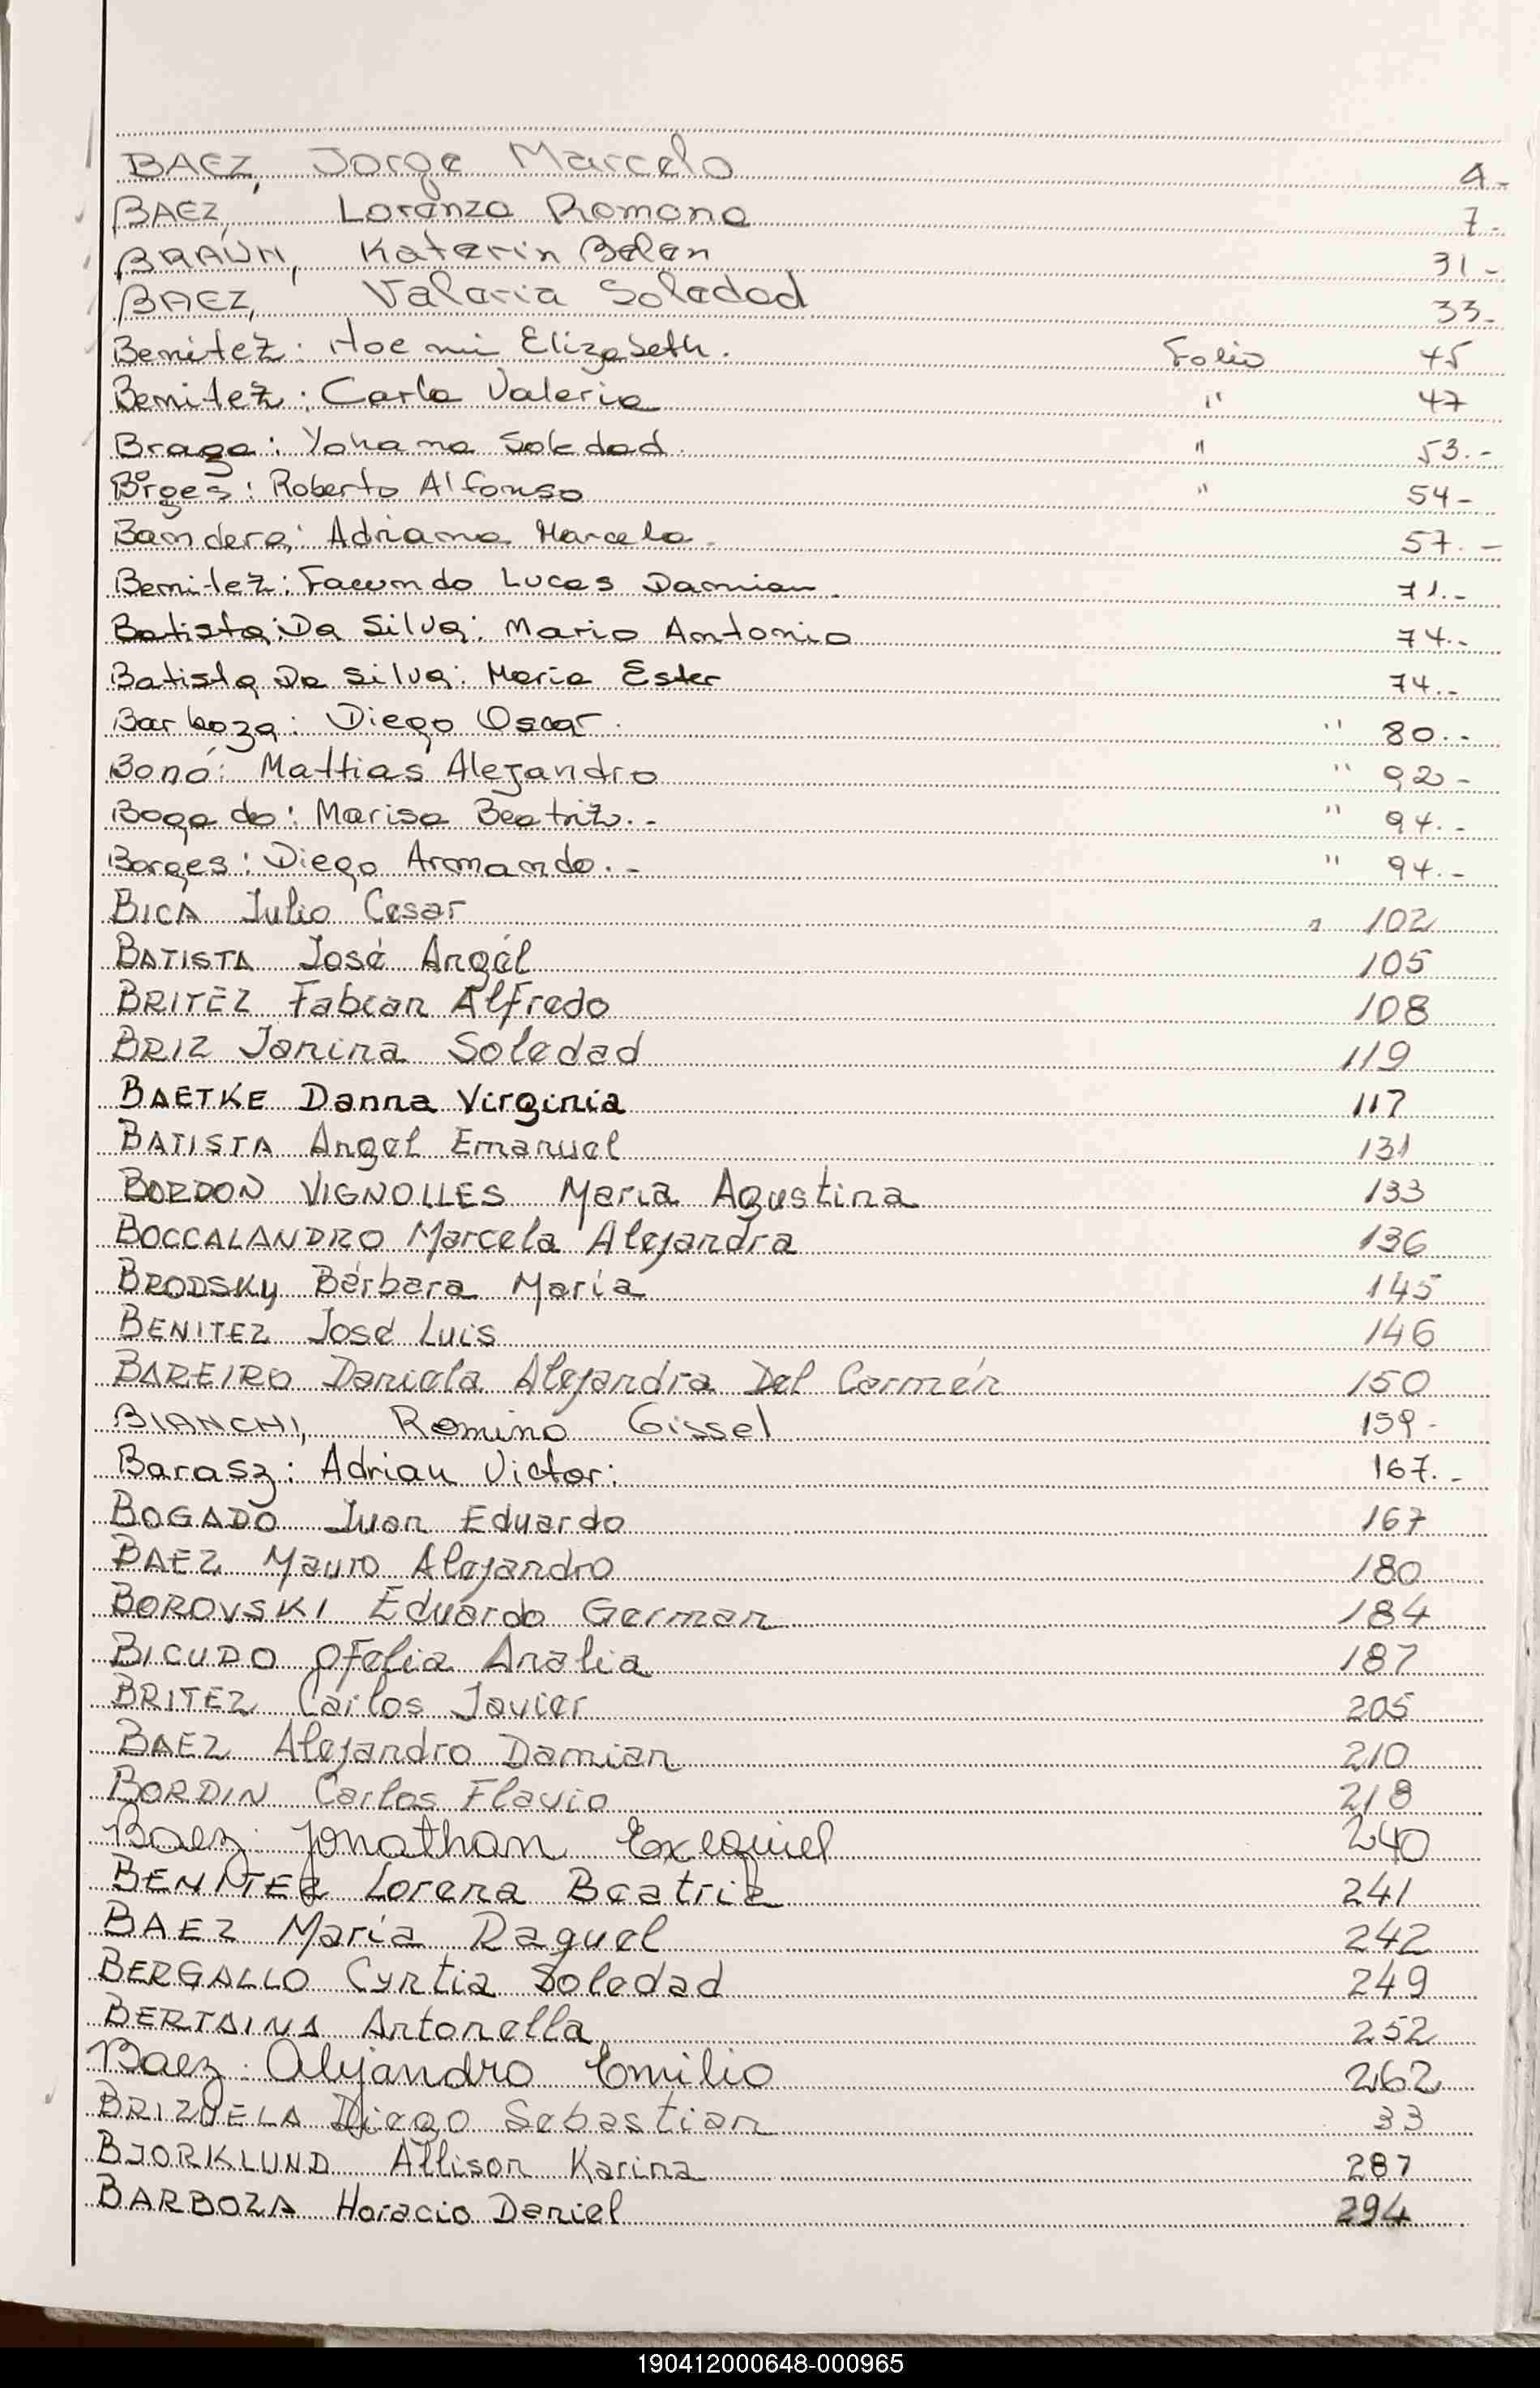 BAEZ, Jorge Marcelo 4.-
BAEZ, Lorenzo Romano 7.-
BRAÚN, Katerin Belen 31-
BAEZ, Valeria Soledad 33-
Benitez: Noemi Elizabeth. Folio 45
Benitez: Carla Valeria " 47
Braga: Yohana Soledad. " 53.-
Borges: Roberto Alfonso " 54-
Bandera: Adriana Marcela. 57.-
Benitez: Facundo Lucas Damian. 71.-
Batista: Da Silva: Mario Antonio 74.-
Batista Da Silva: Maria Ester 74.-
Barboza: Diego Oscar. " 80.-
Bonó: Mattias Alejandro " 92-
Bogado: Marisa Beatriz.- " 94.-
Borges: Diego Armando.- " 94.-
BICA Julio Cesar " 102
BATISTA José Angél 105
BRITEZ Fabian Alfredo 108
BRIZ Janina Soledad 119
BAETKE Danna Virginia 117
BATISTA Angel Emanuel 131
BORDON VIGNOLLES Maria Agustina 133
BOCCALANDRO Marcela Alejandra 136
BRODSKY Bárbara María 145
BENITEZ José Luis 146
BAREIRO Daniela Alejandra Del Carmén 150
BIANCHI, Romina Gissel 159-
Barasz: Adrian Victor: 167.-
BOGADO Juan Eduardo 167
BAEZ Mauro Alejandro 180
BOROVSKI Eduardo German 184
BICUDO Ofelia Analia 187
BRITEZ Carlos Javier 205
BAEZ Alejandro Damian 210
BORDIN Carlos Flavio 218
Baez: Jonathan Exequiel 240
BENITEZ Lorena Beatriz 241
BAEZ María Raquel 242
BERGALLO Cyntia Soledad 249
BERTAINA Antonella 252
Baez: Alejandro Emilio 262
BRIZUELA Diego Sebastian 33
BJORKLUND Allison Karina 287
BARBOZA Horacio Daniel 294
190412000648-000965